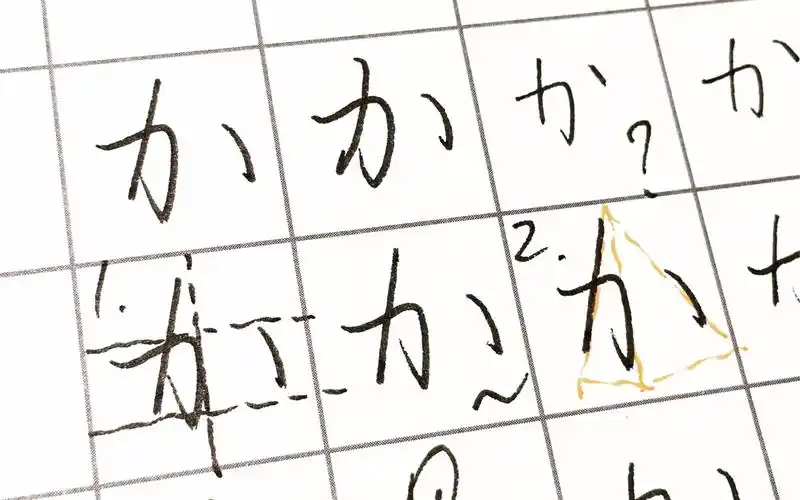 か か か か
?
1. か か 2. か